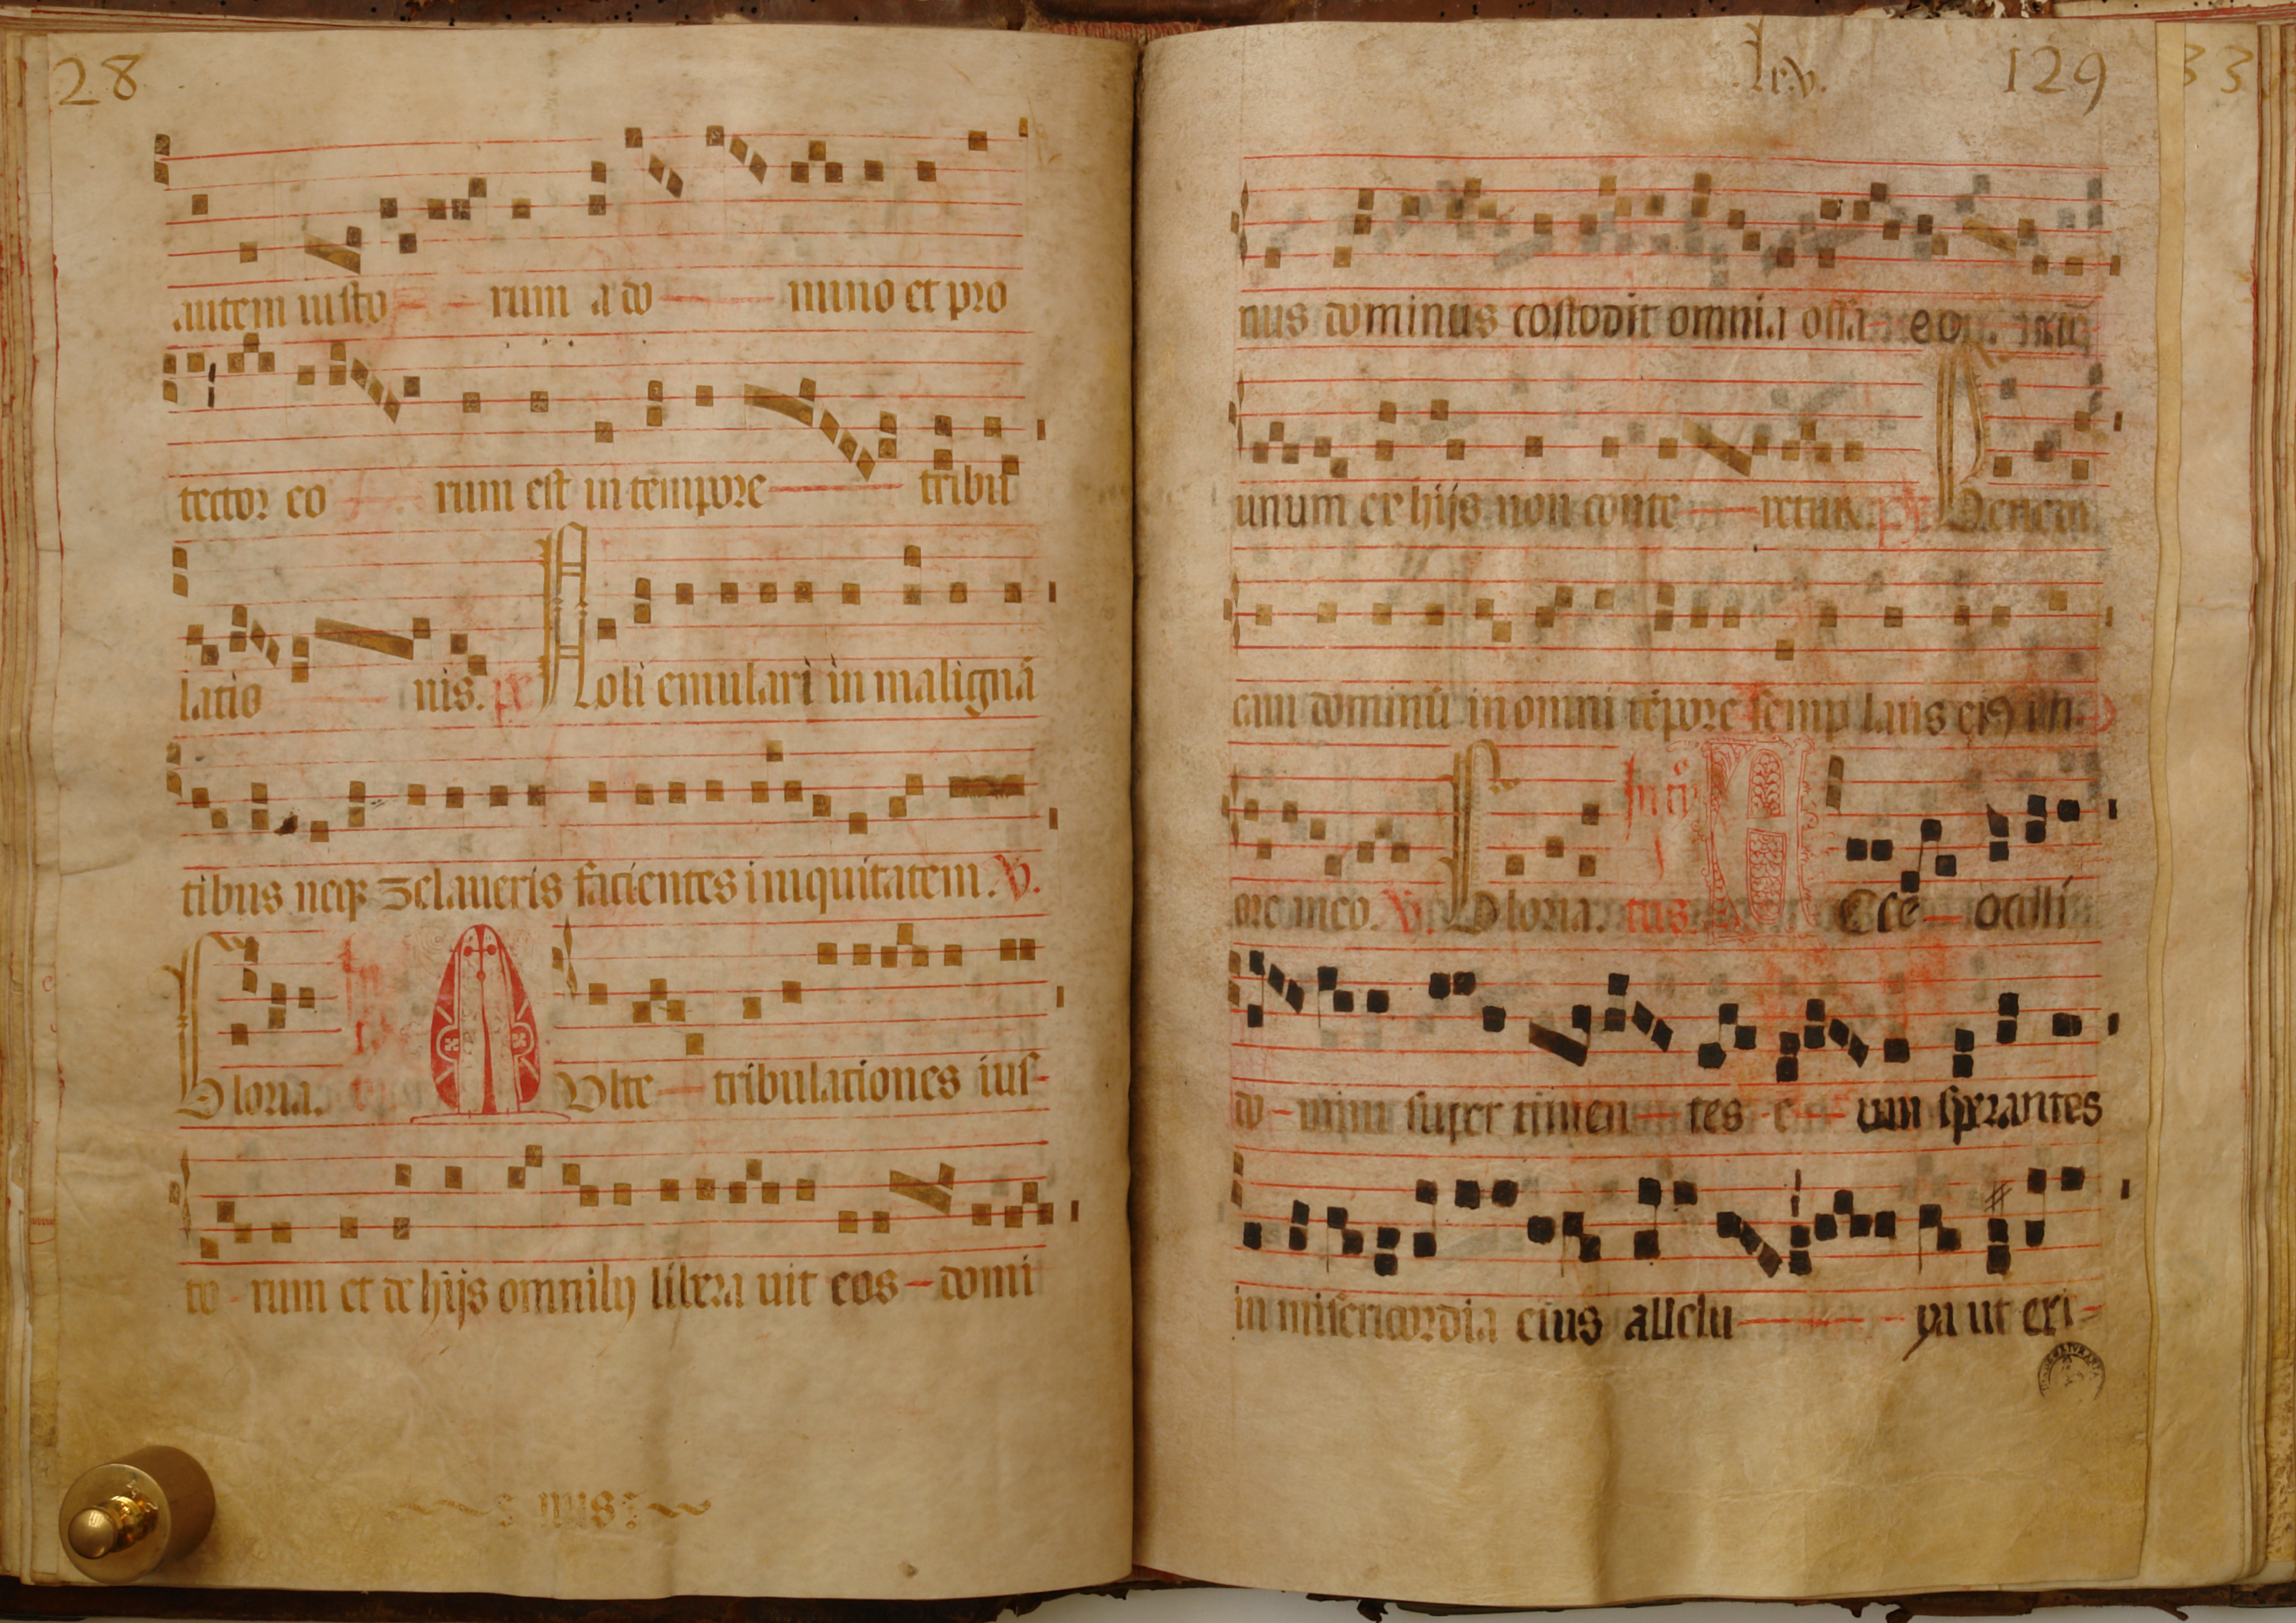 28
autem iusto rum a do mino et pro
tector eo rum est in tempore tribu
latio nis. ps Noli emulari in malignã
tibus neqz zelaueris facientes iniquitatem. V.
Gloria. Multe tribulationes ius-
to-rum et de hijs omnibz libera uit eos-domi
nus
lxv. 129
33
nus dominus costodit omnia ossa eo
unum ex hijs non conte retur. ps Benedi
cam dominũ in omni tẽpore semp laus ei9 in
ore meo. V. Gloria. Ecce oculi
do-mini super timen tes e um sperantes
in misericordia eius allelu ya ut eri-